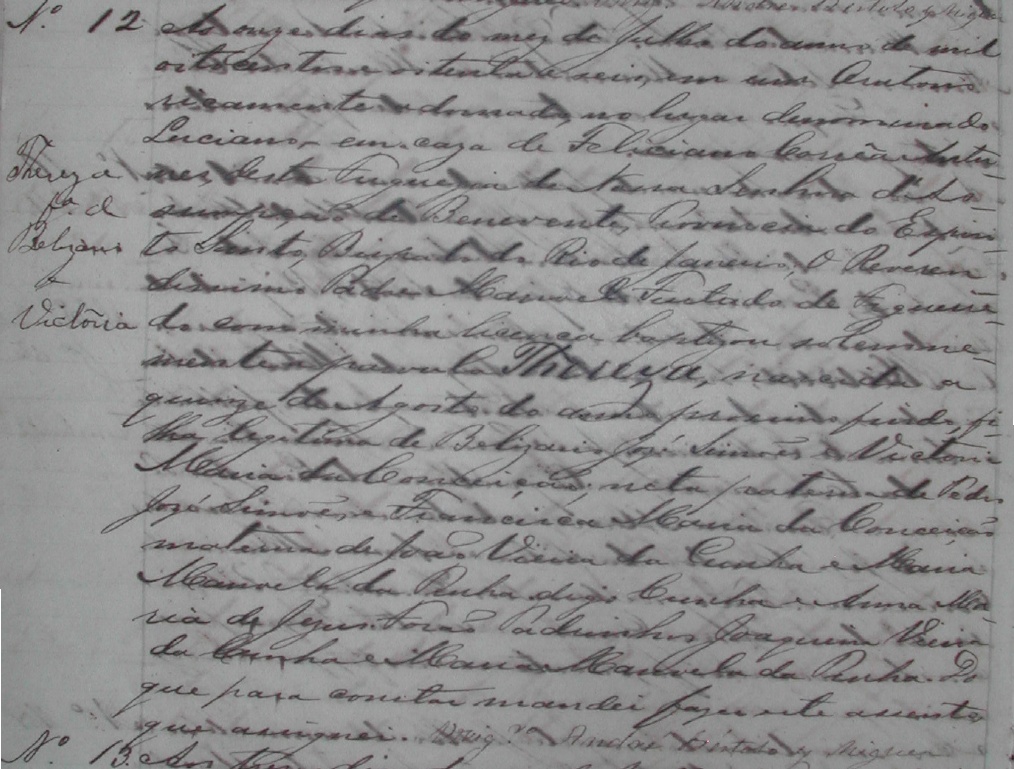 Nº 12 Aos onze dias do mez de Julho do anno de mil
oitocentos e oitenta e seis, em um Oratorio
ricamente adornado, no lugar denominado
Luciano, em caza de Feliciano Corrêa Antu-
nes, desta Freguezia de Nossa Senhora d'As-
sumpção de Benevente, Provincia do Espiri-
to Santo, Bispado do Rio de Janeiro, O Reveren-
dissimo Padre Manoel Furtado de Figueire-
do com minha licença baptizou solemne-
mente a parvula Thereza, nascida a
quinze de Agosto do anno proximo findo, fi-
lha legitima de Belizario José Simões e Victoria
Maria da Conceição: neta paterna de Pedro
José Simões e Francisca Maria da Conceição
materna de João Vieira da Cunha e Maria
Manoela da Penha digo Cunha e Anna Ma-
ria de Jezus. Forão Padrinhos Joaquim Vieira
da Cunha e Maria Manoela da Penha. Do
que para constar mandei fazer este assento
que assignei. Vigrº André
Thereza
fª. d
Belizario
e
Victória
Nº 13. Aos tres